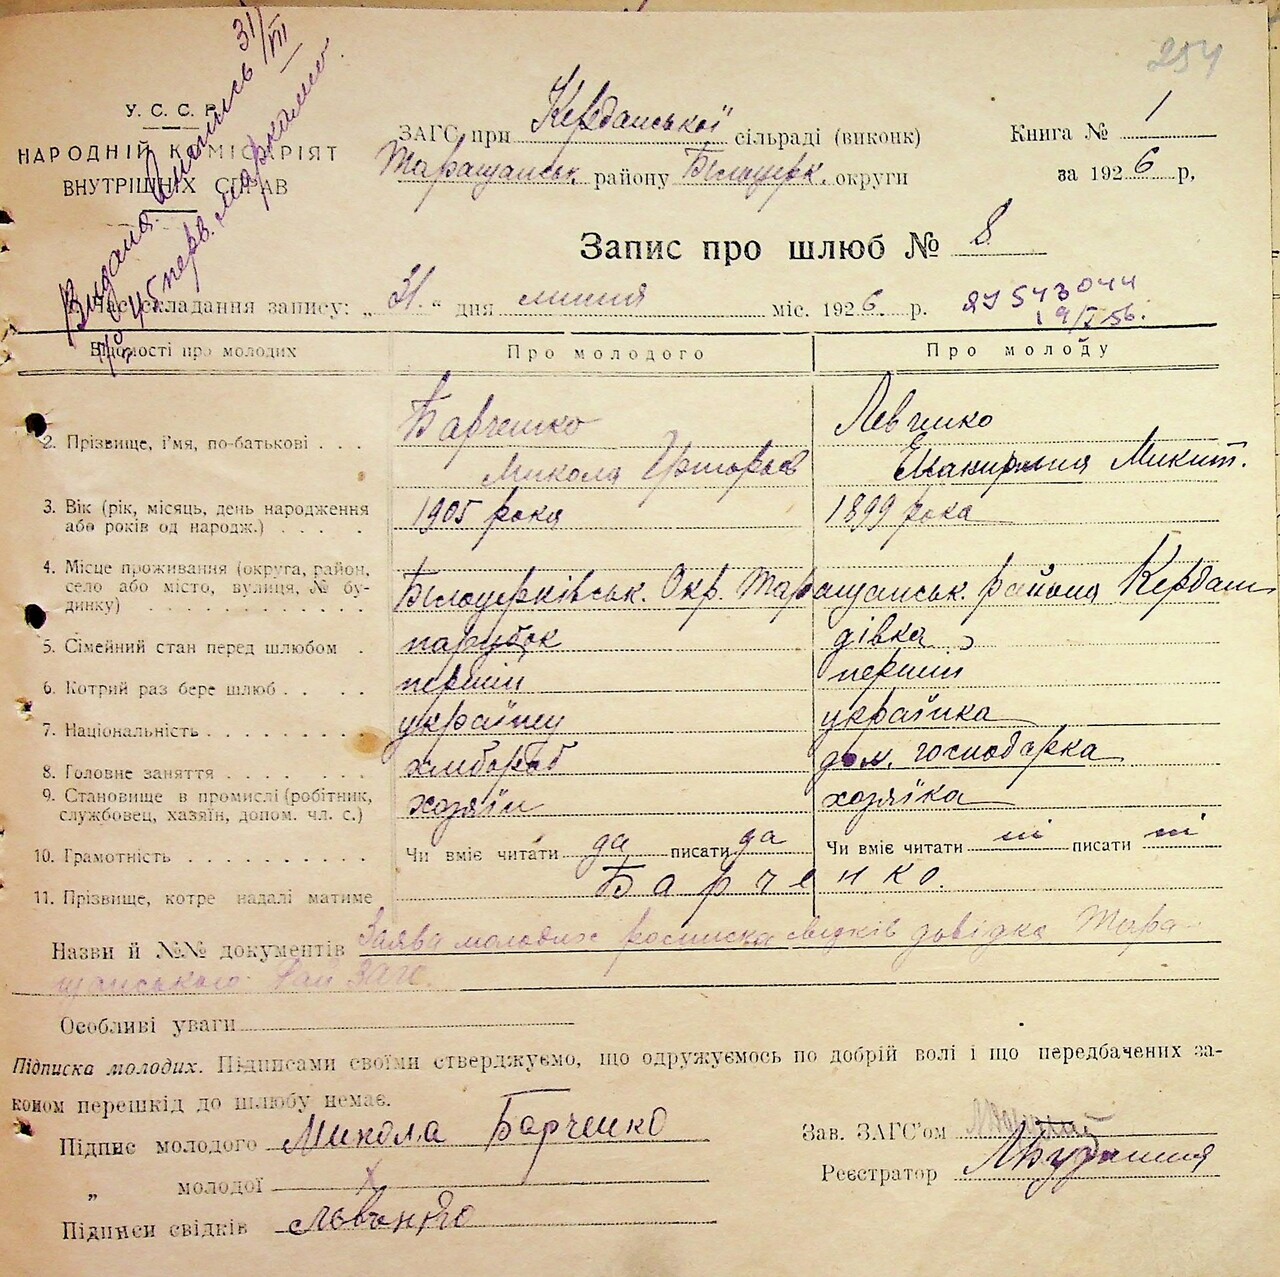 254
У.С.С.Р.
НАРОДНІЙ КОМІСАРІЯТ
ВНУТРІШНІХ СПРАВ
Видана Випись 31/III
№ 45 перв.
ЗАГС при Керданської сільраді (виконк)
Таращанськ. району Білоцерк. округи
Книга № 1
за 1926 р.
Запис про шлюб № 8
1. Час складання запису: „31." дня липня міс. 1926 р.
543044
19/I 56.
Відомості про молодих Про молодого Про молоду
2. Прізвище, і'мя, по-батькові . . . Барченко Левченко
Микола Григорьев Микит.
3. Вік (рік, місяць, день народження 1905 рокя 1899 рока
або років од народж.) . . . .
4. Місце проживання (округа, район,
село або місто, вулиця, № бу- Білоцерківськ. Окр. Таращанськ. района Кердан
динку) . . . . . . . . . . .
5. Сімейний стан перед шлюбом . парубок дівка
6. Котрий раз бере шлюб . . . . перший перший
7. Національність . . . . . . . . . українец українка
8. Головне заняття . . . . . . . хлібороб дом. господарка
9. Становище в промислі (робітник, хозяїн хозяїка
службовец, хазяїн, допом. чл. с.)
10. Грамотність . . . . . . . . . . Чи вміє читати да писати да Чи вміє читати ні писати ні
11. Прізвище, котре надалі матиме Барченко.
Назви й №№ документів Заява молодих росписка свідків довідка Тара
щанського Рай ЗАГС.
Особливі уваги
Підписка молодих. Підписами своїми стверджуємо, що одружуємось по добрій волі і що передбачених за-
коном перешкід до шлюбу немає.
Підпис молодого Микола Барченко
Зав. ЗАГС'ом
„ молодої X
Реєстратор
Підписи свідків Лєвченко